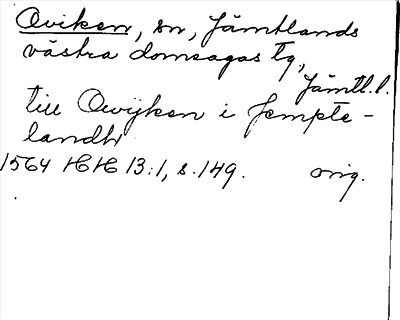 Oviken, sn, Jämtlands
västra domsagas tg,
Jämtl.l.
till Owijken i Jempte-
landh
1564 HH 13:1, s.149. orig.